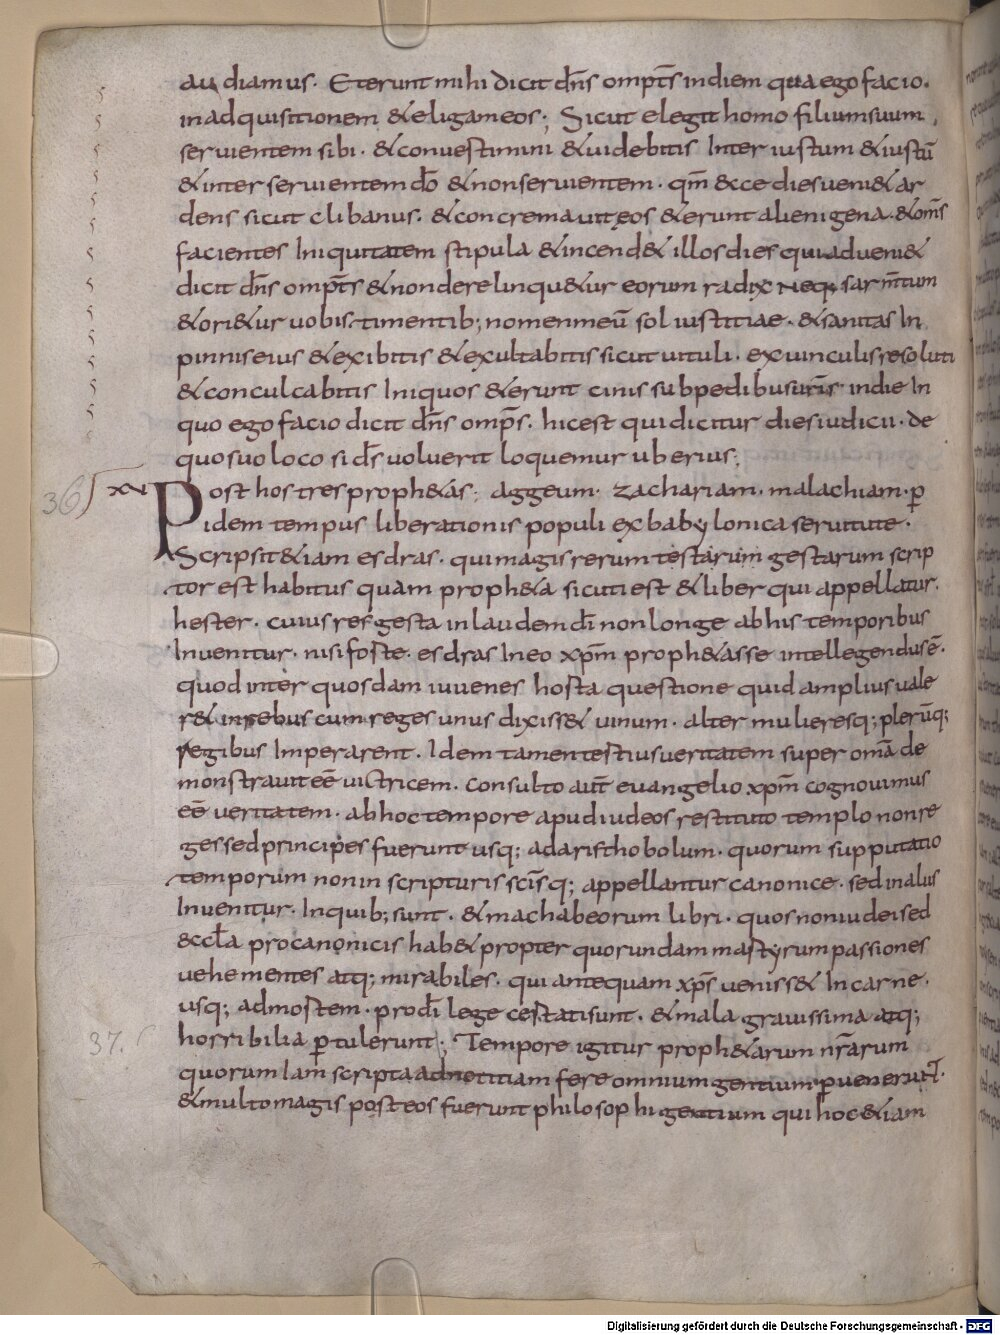 audiamus. Et erunt mihi dicit dn̄s omp̄ts in diem qua ego facio.
in adquisitionem & eligam eos; Sicut elegit homo filium suum
servientem sibi. & convertimini & videbitis Inter iustum & iustū
& inter servientem dō & non servientem. qm̄ ecce dies veni& ar
dens sicut clibanus. & concremavit eos & erunt alienigena. & om̄s
facientes Iniquitatem stipula & incend& illos dies qui adveni&
dicit dn̄s omp̄ts & non derelinqu&ur eorum radix neq; sarm̄tum
& ori&ur vobis timentib; nomen meū sol iustitiae. & sanitas In
pinnis eius & exibitis & exultabitis sicut vituli. ex vinculis resoluti
& conculcabitis Iniquos & erunt cinis sub pedibus uris̄ in die In
quo ego facio dicit dn̄s omp̄s. hic est qui dicitur dies iudicii. de
quo suo loco si ds̄ voluerit loquemur uberius;
36 XV Post hos tres proph&as; aggeum. zachariam. malachiam. p̄
idem tempus liberationis populi ex babylonica servitute.
Scripsit &iam esdras. qui magis rerum testarum gestarum scrip
tor est habitus quam proph&a sicuti est & liber qui appellatur.
hester. cuius res gesta in laudem dī non longe ab his temporibus
Invenitur. nisi forte. esdras In eo xp̄m proph&asse intellegendus ē.
quod inter quosdam iuvenes horta questione quid amplius vale
r& in rebus cum reges unus dixiss& vinum. alter mulieres q; plerūq;
regibus Imperarent. Idem tamen tertius veritatem super omā de
monstravit eē victricem. consulto aut̄ evangelio xp̄m cognovimus
eē veritatem. ab hoc tempore apud iudeos restituto templo non re
ges sed principes fuerunt usq; ad aristhobolum. quorum supputatio
temporum non in scripturis scīs q; appellantur canonice. sed in aliis
Invenitur. In quib; sunt. & machabeorum libri. quos non iudei sed
& eccl̄a pro canonicis hab& propter quorundam martyrum passiones
vehementes atq; mirabiles. qui antequam xp̄s veniss& In carne.
usq; ad mortem. pro dī lege certati sunt. & mala gravissima atq;
37. horribilia p̄tulerunt; Tempore igitur proph&arum nr̄arum
quorum Iam scripta ad notitiam fere omnium gentium p̄venerunt.
& multo magis post eos fuerunt philosophi gentium qui hoc &iam
Digitalisierung gefördert durch die Deutsche Forschungsgemeinschaft - DFG